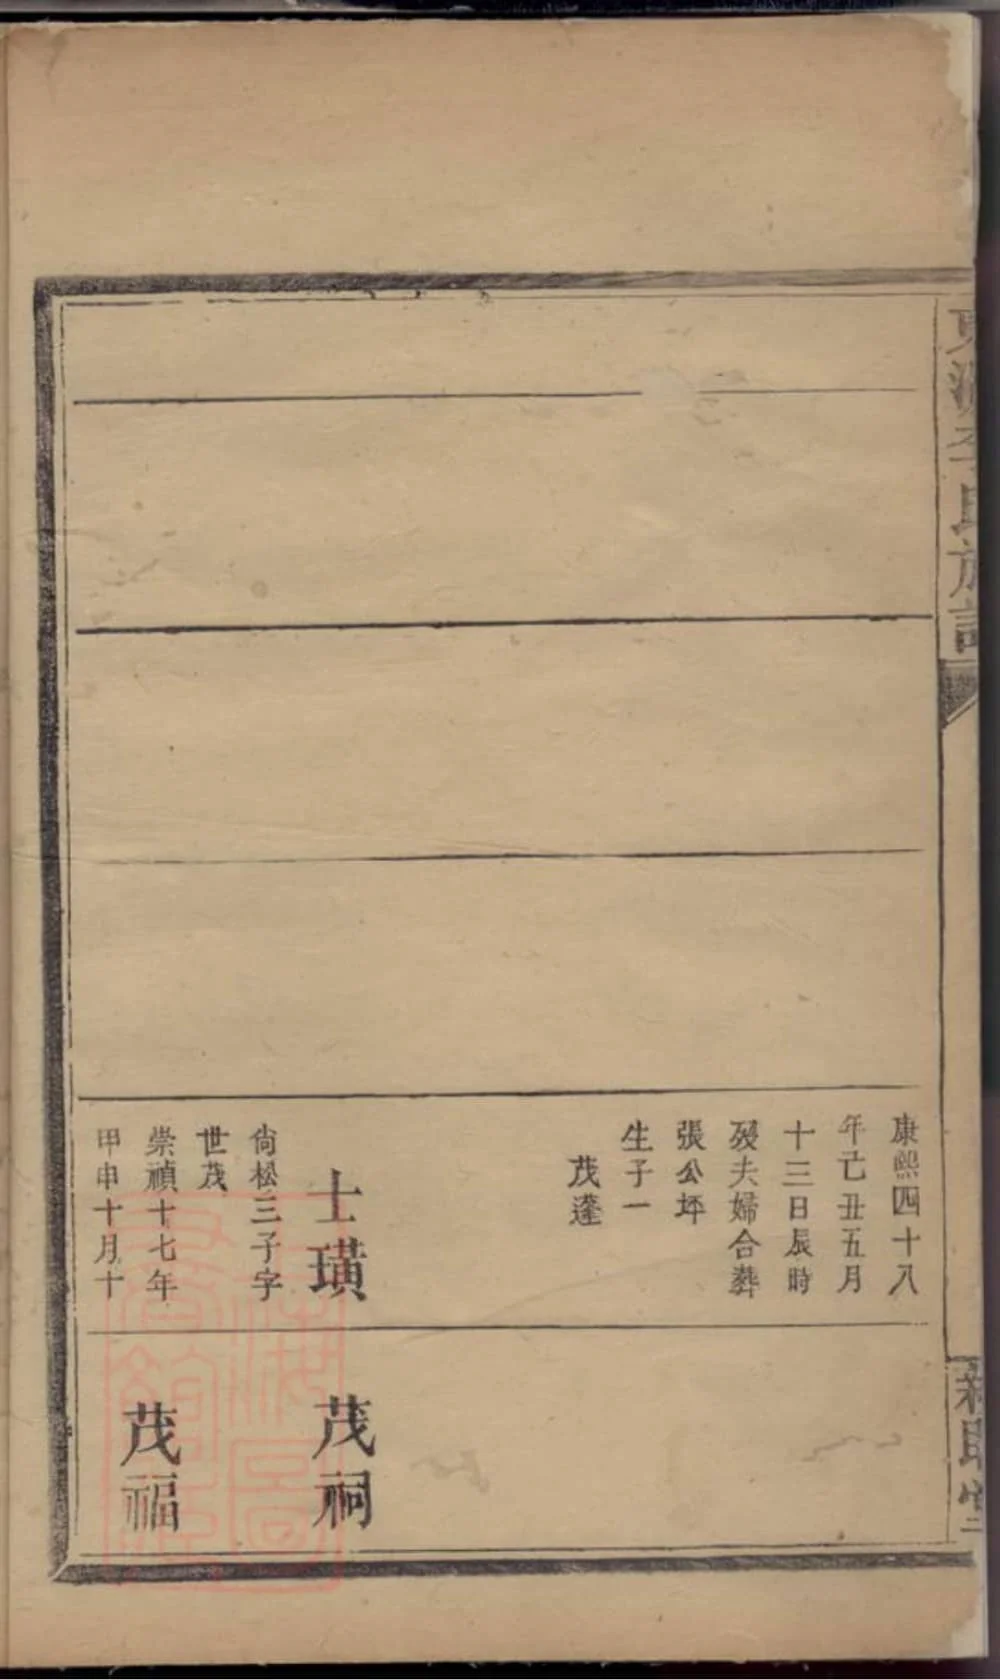 康熙四十八
年己丑五月
十三日辰時
歿夫婦合葬
張公坪
生子一
茂蓬
士璜
尙松三子字
世茂
崇禎十七年
甲申十月十
茂祠
茂福